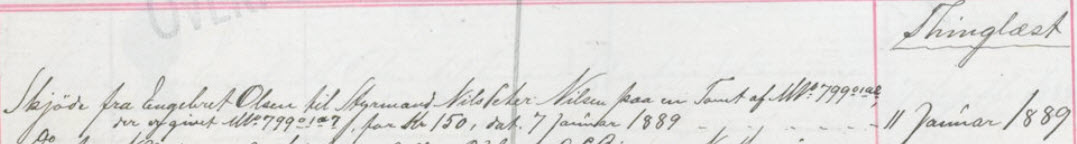 OVER
Thinglæst
Skjöde fra Engebret Olsen til Styrmand Nils Peter Nilsen paa en Tomt af MNo 799
der er givet MNo 799, for Kr 150, dat. 7 Januar 1889 - - - - - 11 Januar 1889